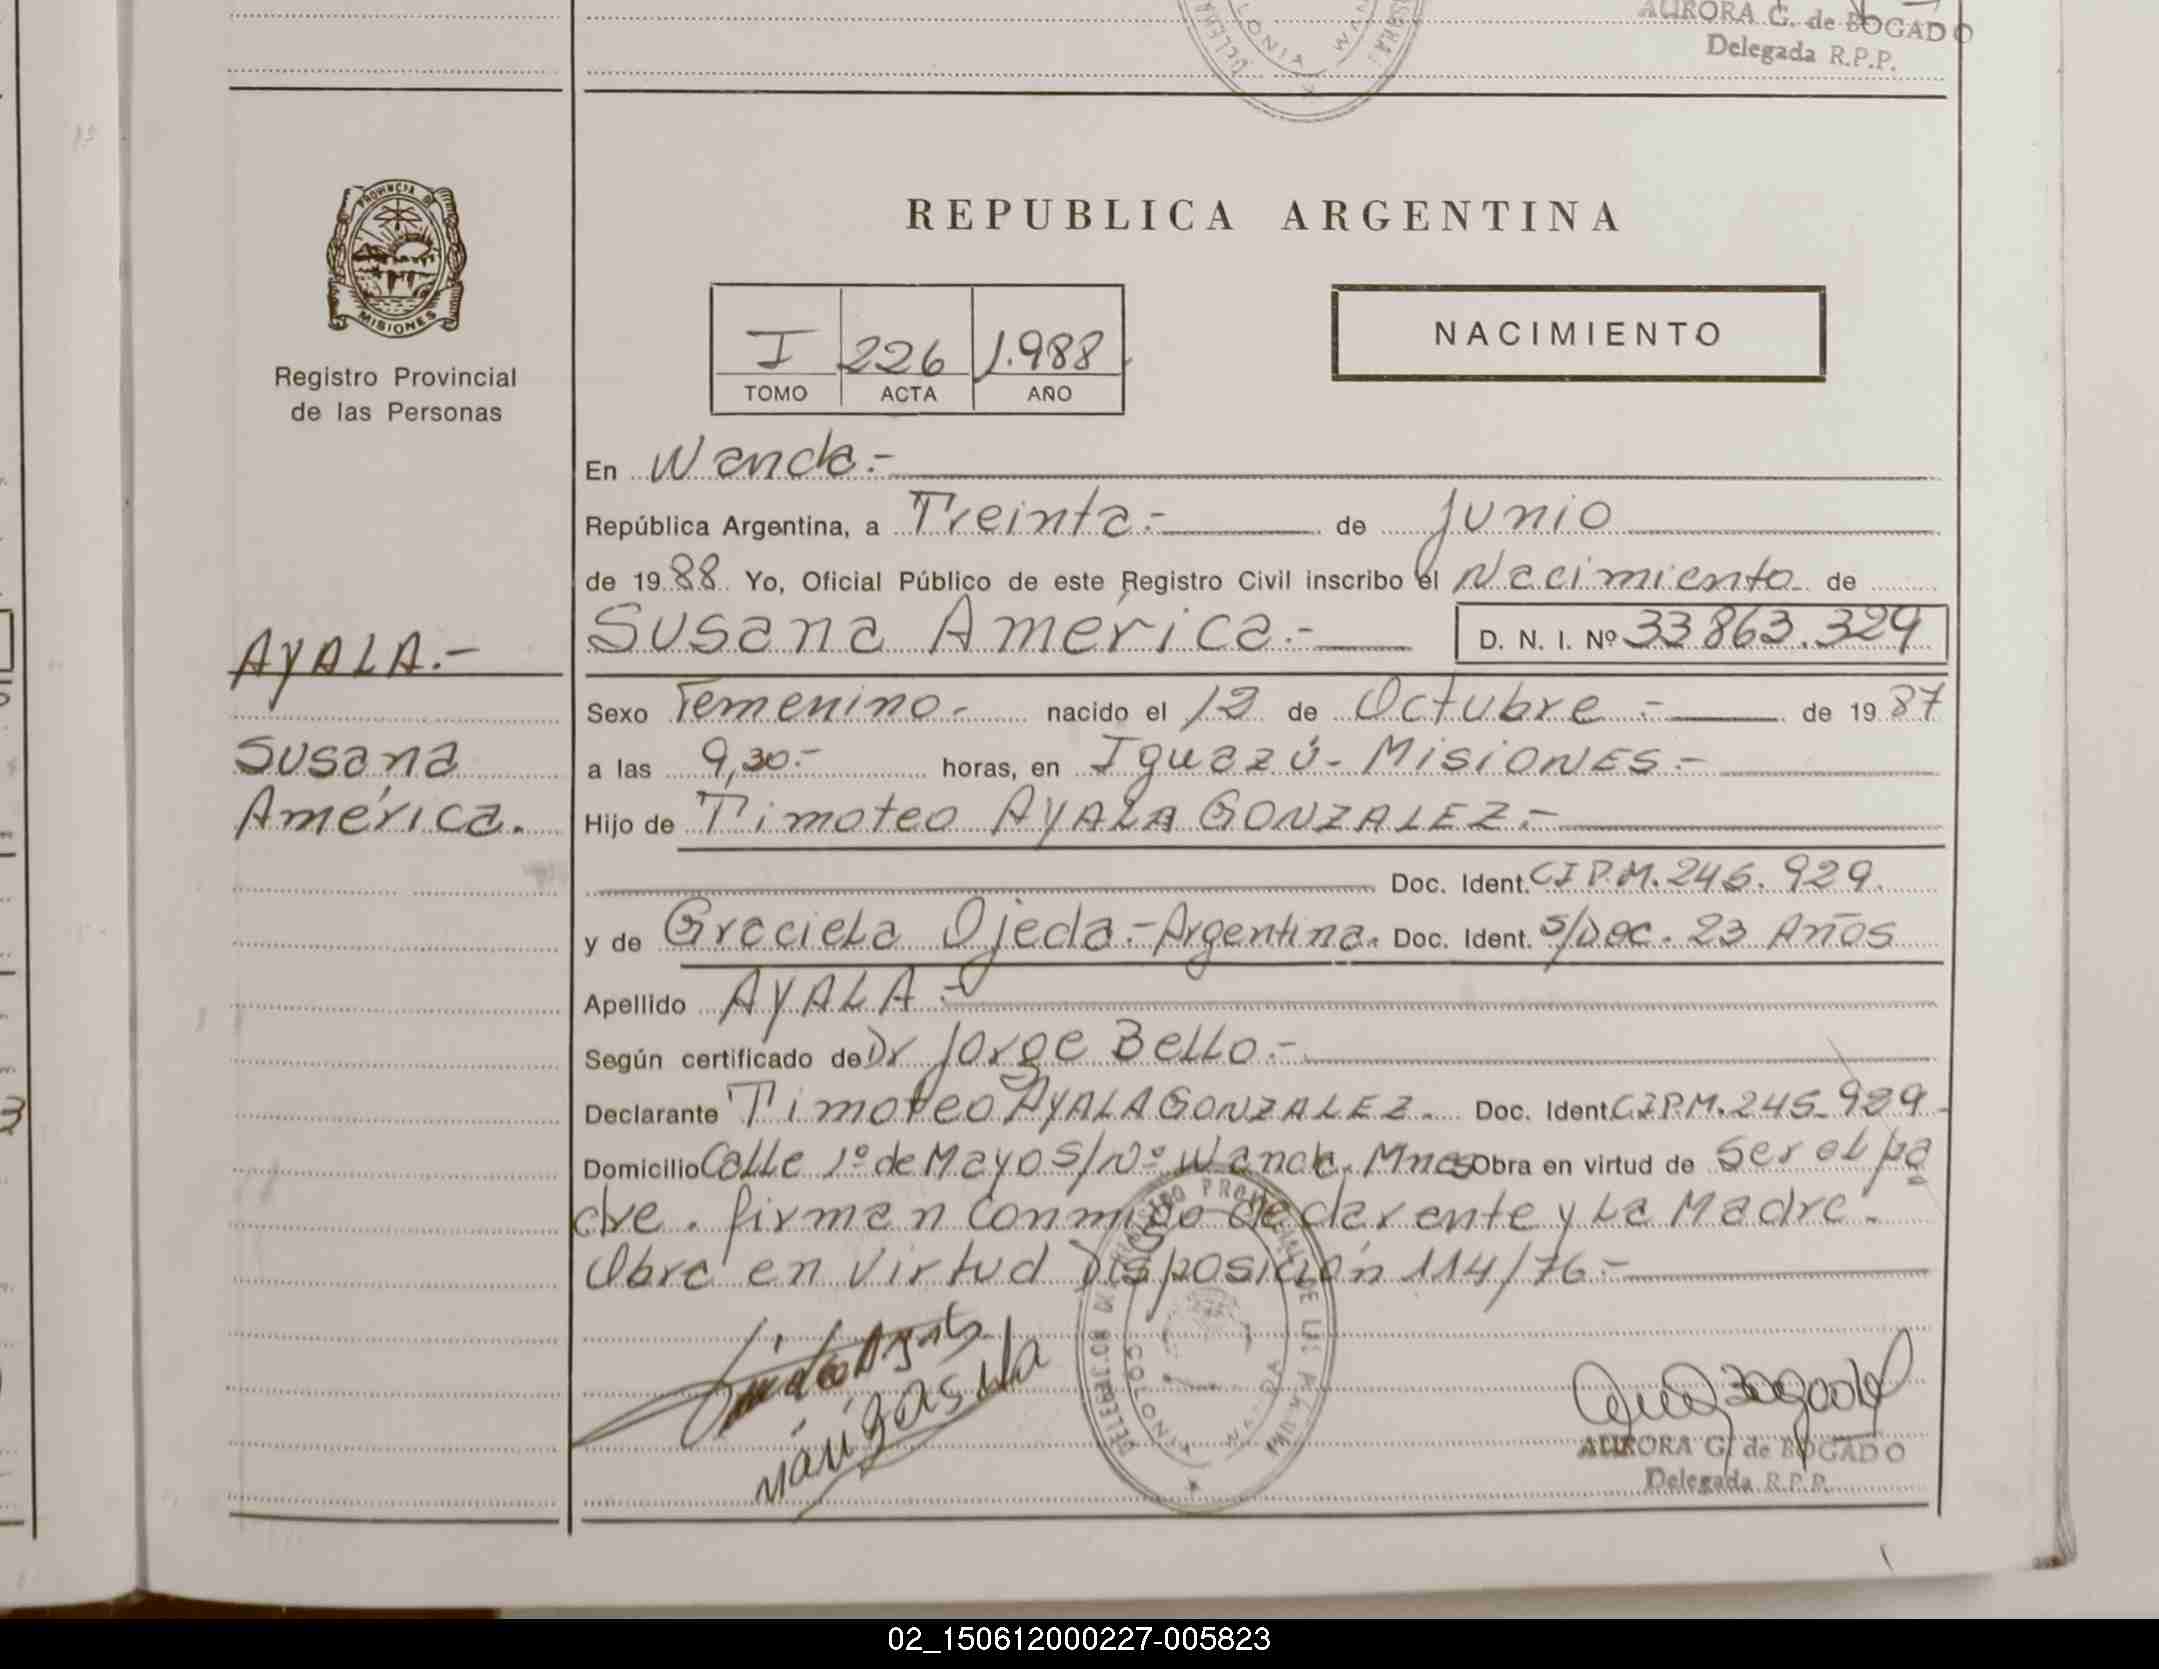 AURORA G. de BOGADO
Delegada R.P.P.
PROVINCIA DE
MISIONES
Registro Provincial
de las Personas
REPUBLICA ARGENTINA
I 226 1.988
TOMO ACTA AÑO
NACIMIENTO
En Wanda.-
República Argentina, a Treinta.- de junio
de 1988 Yo, Oficial Público de este Registro Civil inscribo el Nacimiento de
AYALA.-
Susana América.- D. N. I. Nº 33863.329
Sexo Femenino.- nacido el 12 de Octubre.- de 1987
Susana
a las 9,30.- horas, en Iguazú- MISIONES.-
América.
Hijo de Timoteo AYALA GONZALEZ.-
Doc. Ident. CIPM.245.929
y de Graciela Ojeda.-Argentina. Doc. Ident. s/Doc. 23 Años
Apellido AYALA.-
Según certificado de Dr Jorge Bello.-
Declarante Timoteo AYALA GONZALEZ. Doc. Ident. CIPM.245.929-
Domicilio Calle 1º de Mayo S/Nº Wanda. Mnes Obra en virtud de ser el pa
dre. firman conmigo declarante y La Madre.
Obra en virtud Disposición 114/76.-
COLONIA WANDA
AURORA G. de BOGADO
Delegada R.P.P.
02_150612000227-005823